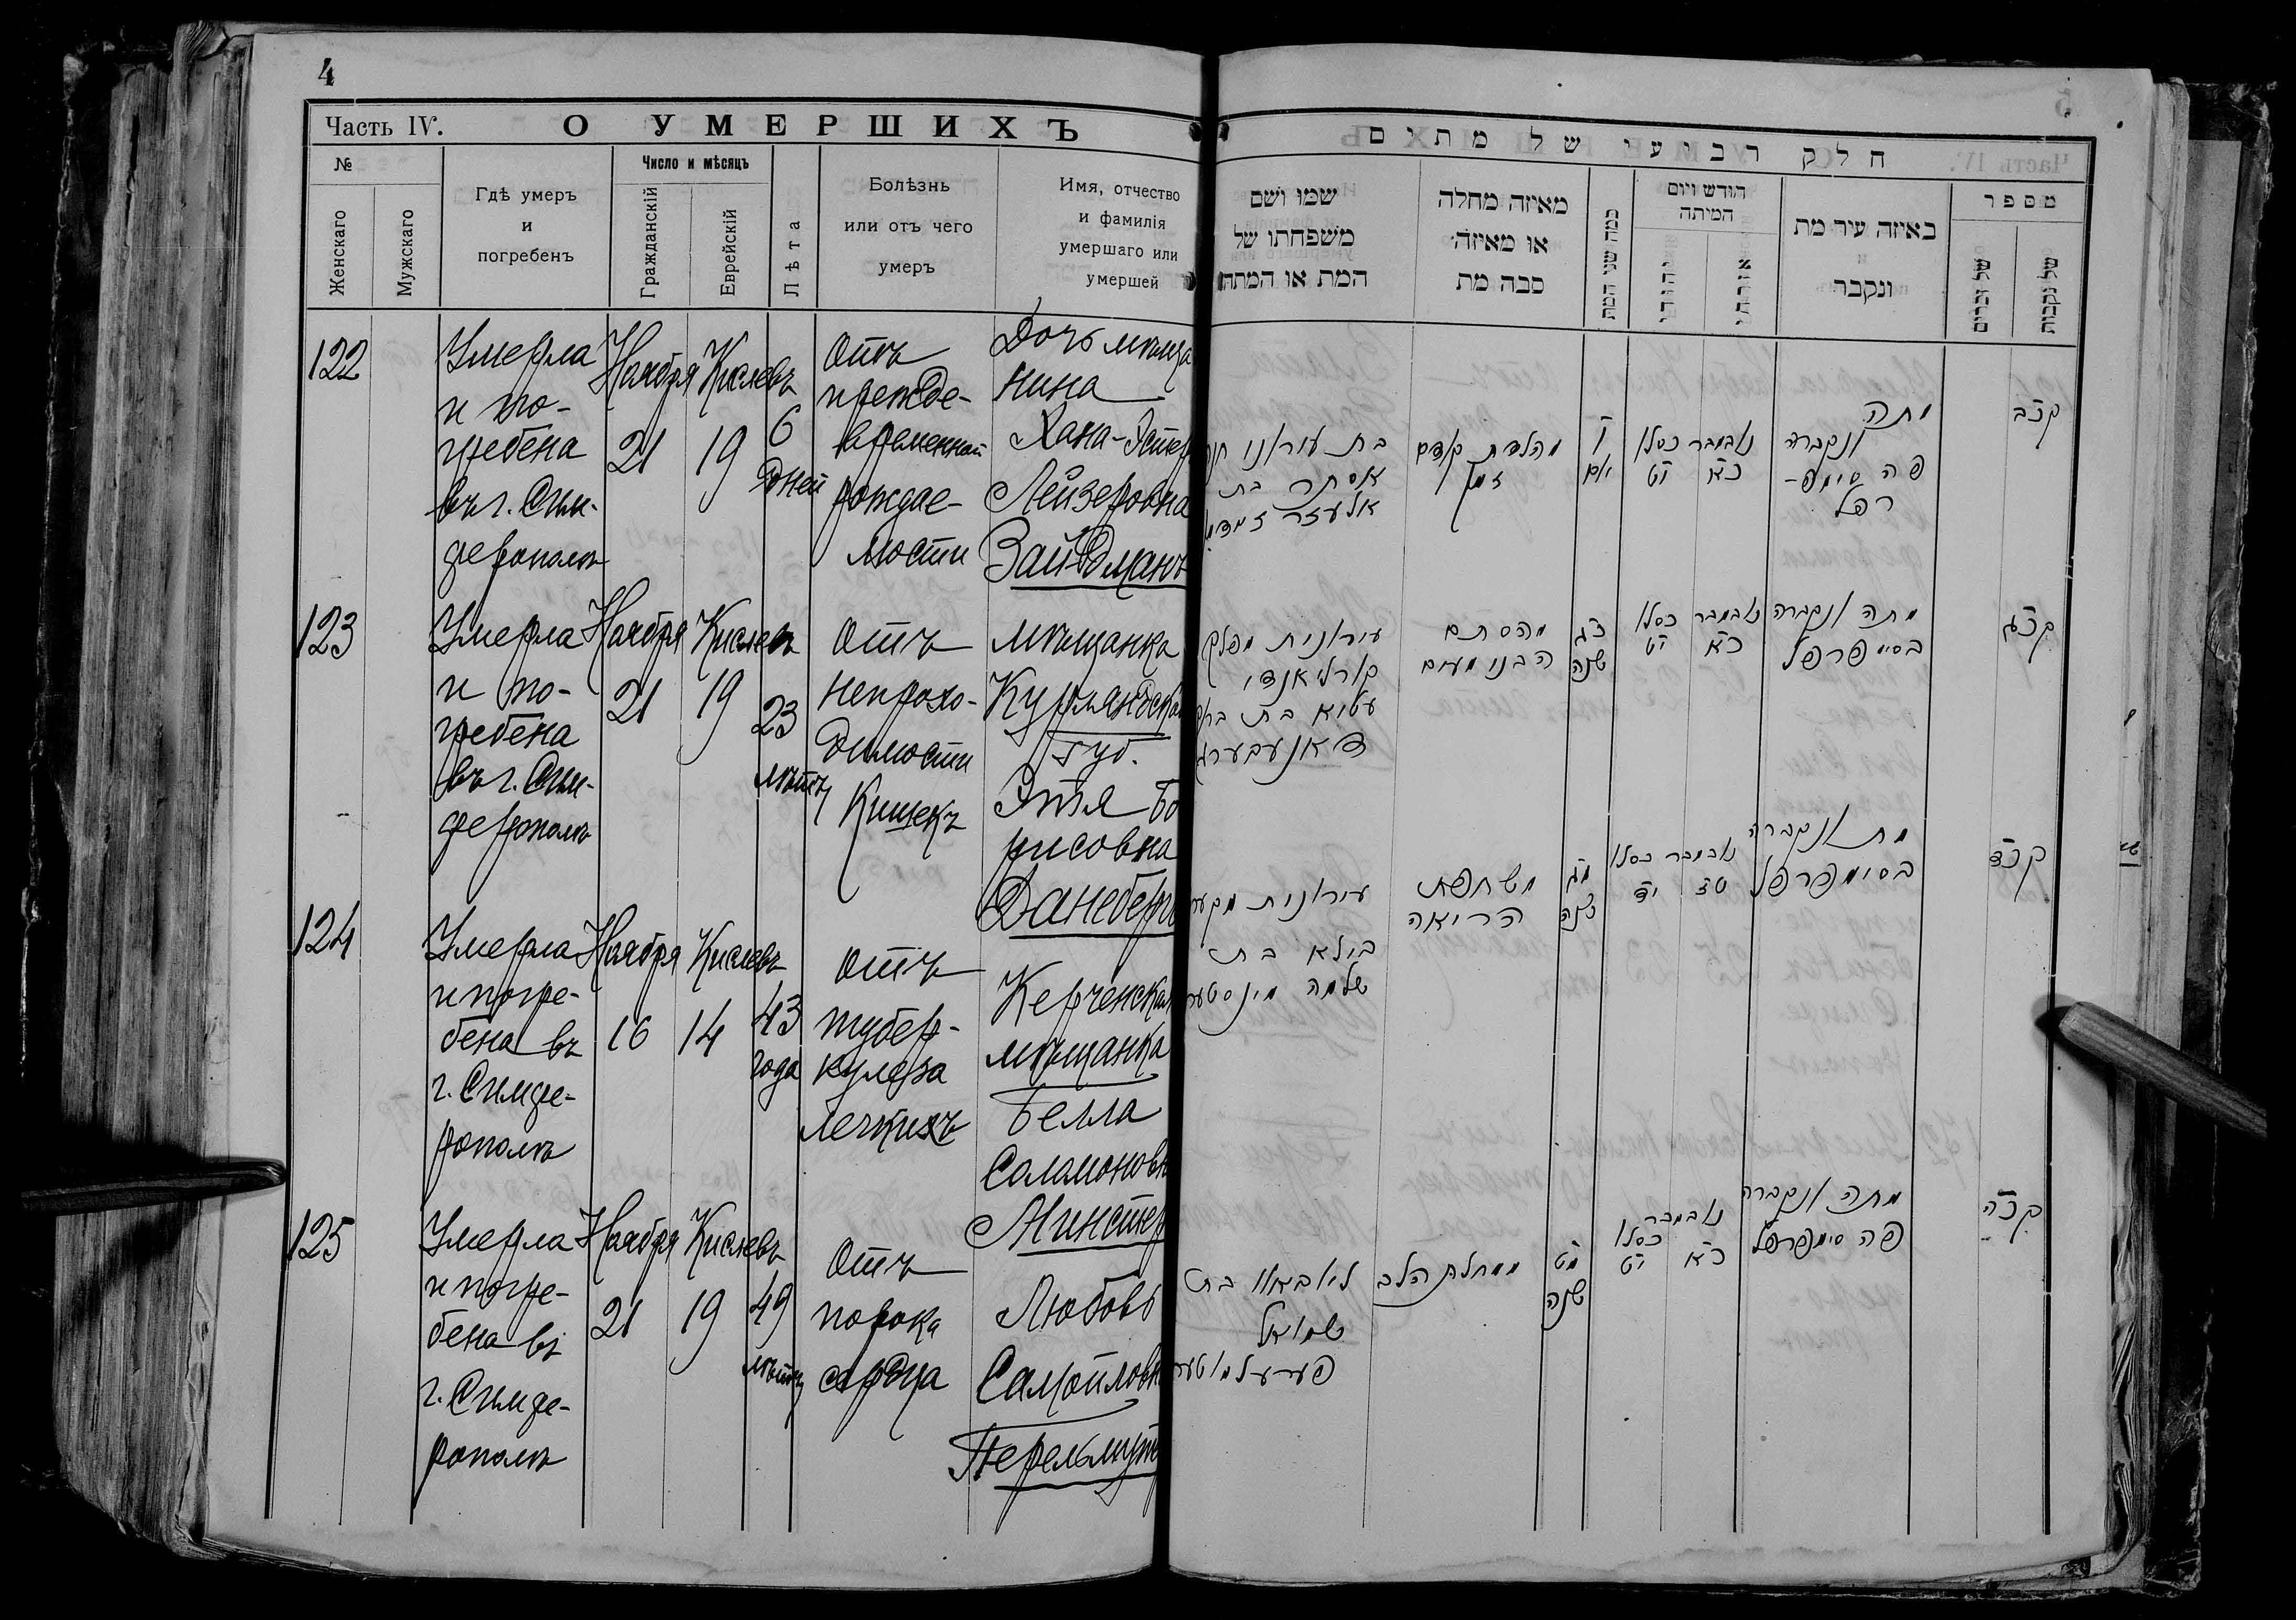 4
Часть IV. О УМЕРШИХЪ
№
Женскаго
Мужскаго
Гдѣ умеръ
и
погребенъ
Число и мѣсяцъ
Гражданскій
Еврейскій
Лѣта
Болѣзнь
или отъ чего
умеръ
Имя, отчество
и фамилія
умершаго или
умершей
122
Умерла
и по-
гребена
въ г. Сим-
ферополѣ
Ноября
21
Кислевъ
19
6
дней
Отъ
прежде-
временной
рождае-
мости
Дочь мѣща
нина
Хана-Эстер
Лейзеровна
Зайдманъ
123
Умерла
и по-
гребена
въ г. Сим-
ферополѣ
Ноября
21
Кислевъ
19
23
лѣтъ
Отъ
непрохо-
димости
Кишекъ
мѣщанка
Курляндской
Губ.
Этля Бо
рисовна
Данеберг
124
Умерла
и погре-
бена въ
г. Симфе-
рополѣ
Ноября
16
Кислевъ
14
43
года
Отъ
тубер-
кулеза
Легкихъ
Керченская
мѣщанка
Белла
Соломоновн
Минстер
125
Умерла
и погре-
бена въ
г. Симфе-
рополѣ
Ноября
21
Кислевъ
19
49
лѣтъ
Отъ
порока
сердца
Любовь
Самойловн
Перельмут
חלק רביעי של מתים
מספר
של נקבות
של זכרים
באיזה עיר מת
ונקבר
חודש ויום
המיתה
כמה שני המת
מאיזה מחלה
או מאיזה
סבה מת
שמו ושם
משפחתו של
המת או המתה
קכב
מתה
ונקברה
פה סימפ-
רפל
נאבמבר
כא
כסלו
יט
ו
מהלדת קודם
זמן
בת עוראנו חנה
אסתר בת
אלעזר
קכג
מתה ונקברה
בסימפרפל
נאבמבר
כא
כסלו
יט
כג
שנה
מהסתם
הבני מעים
עיראנית מפלך
קורליאנדי
בת
דאנעבערג
קכד
מת ונקברה
בסימפרפל
נאבמבר
טז
כסלו
יד
מג
שנה
משחפת
הריאה
עיראנית
בילא בת
שלמה מינסטער
קכה
מתה ונקברה
פה סימפרפל
נאבמבר
כא
כסלו
יט
מט
שנה
ממחלת הלב
ליובאוו בת
שמואל
פערעלמוטער